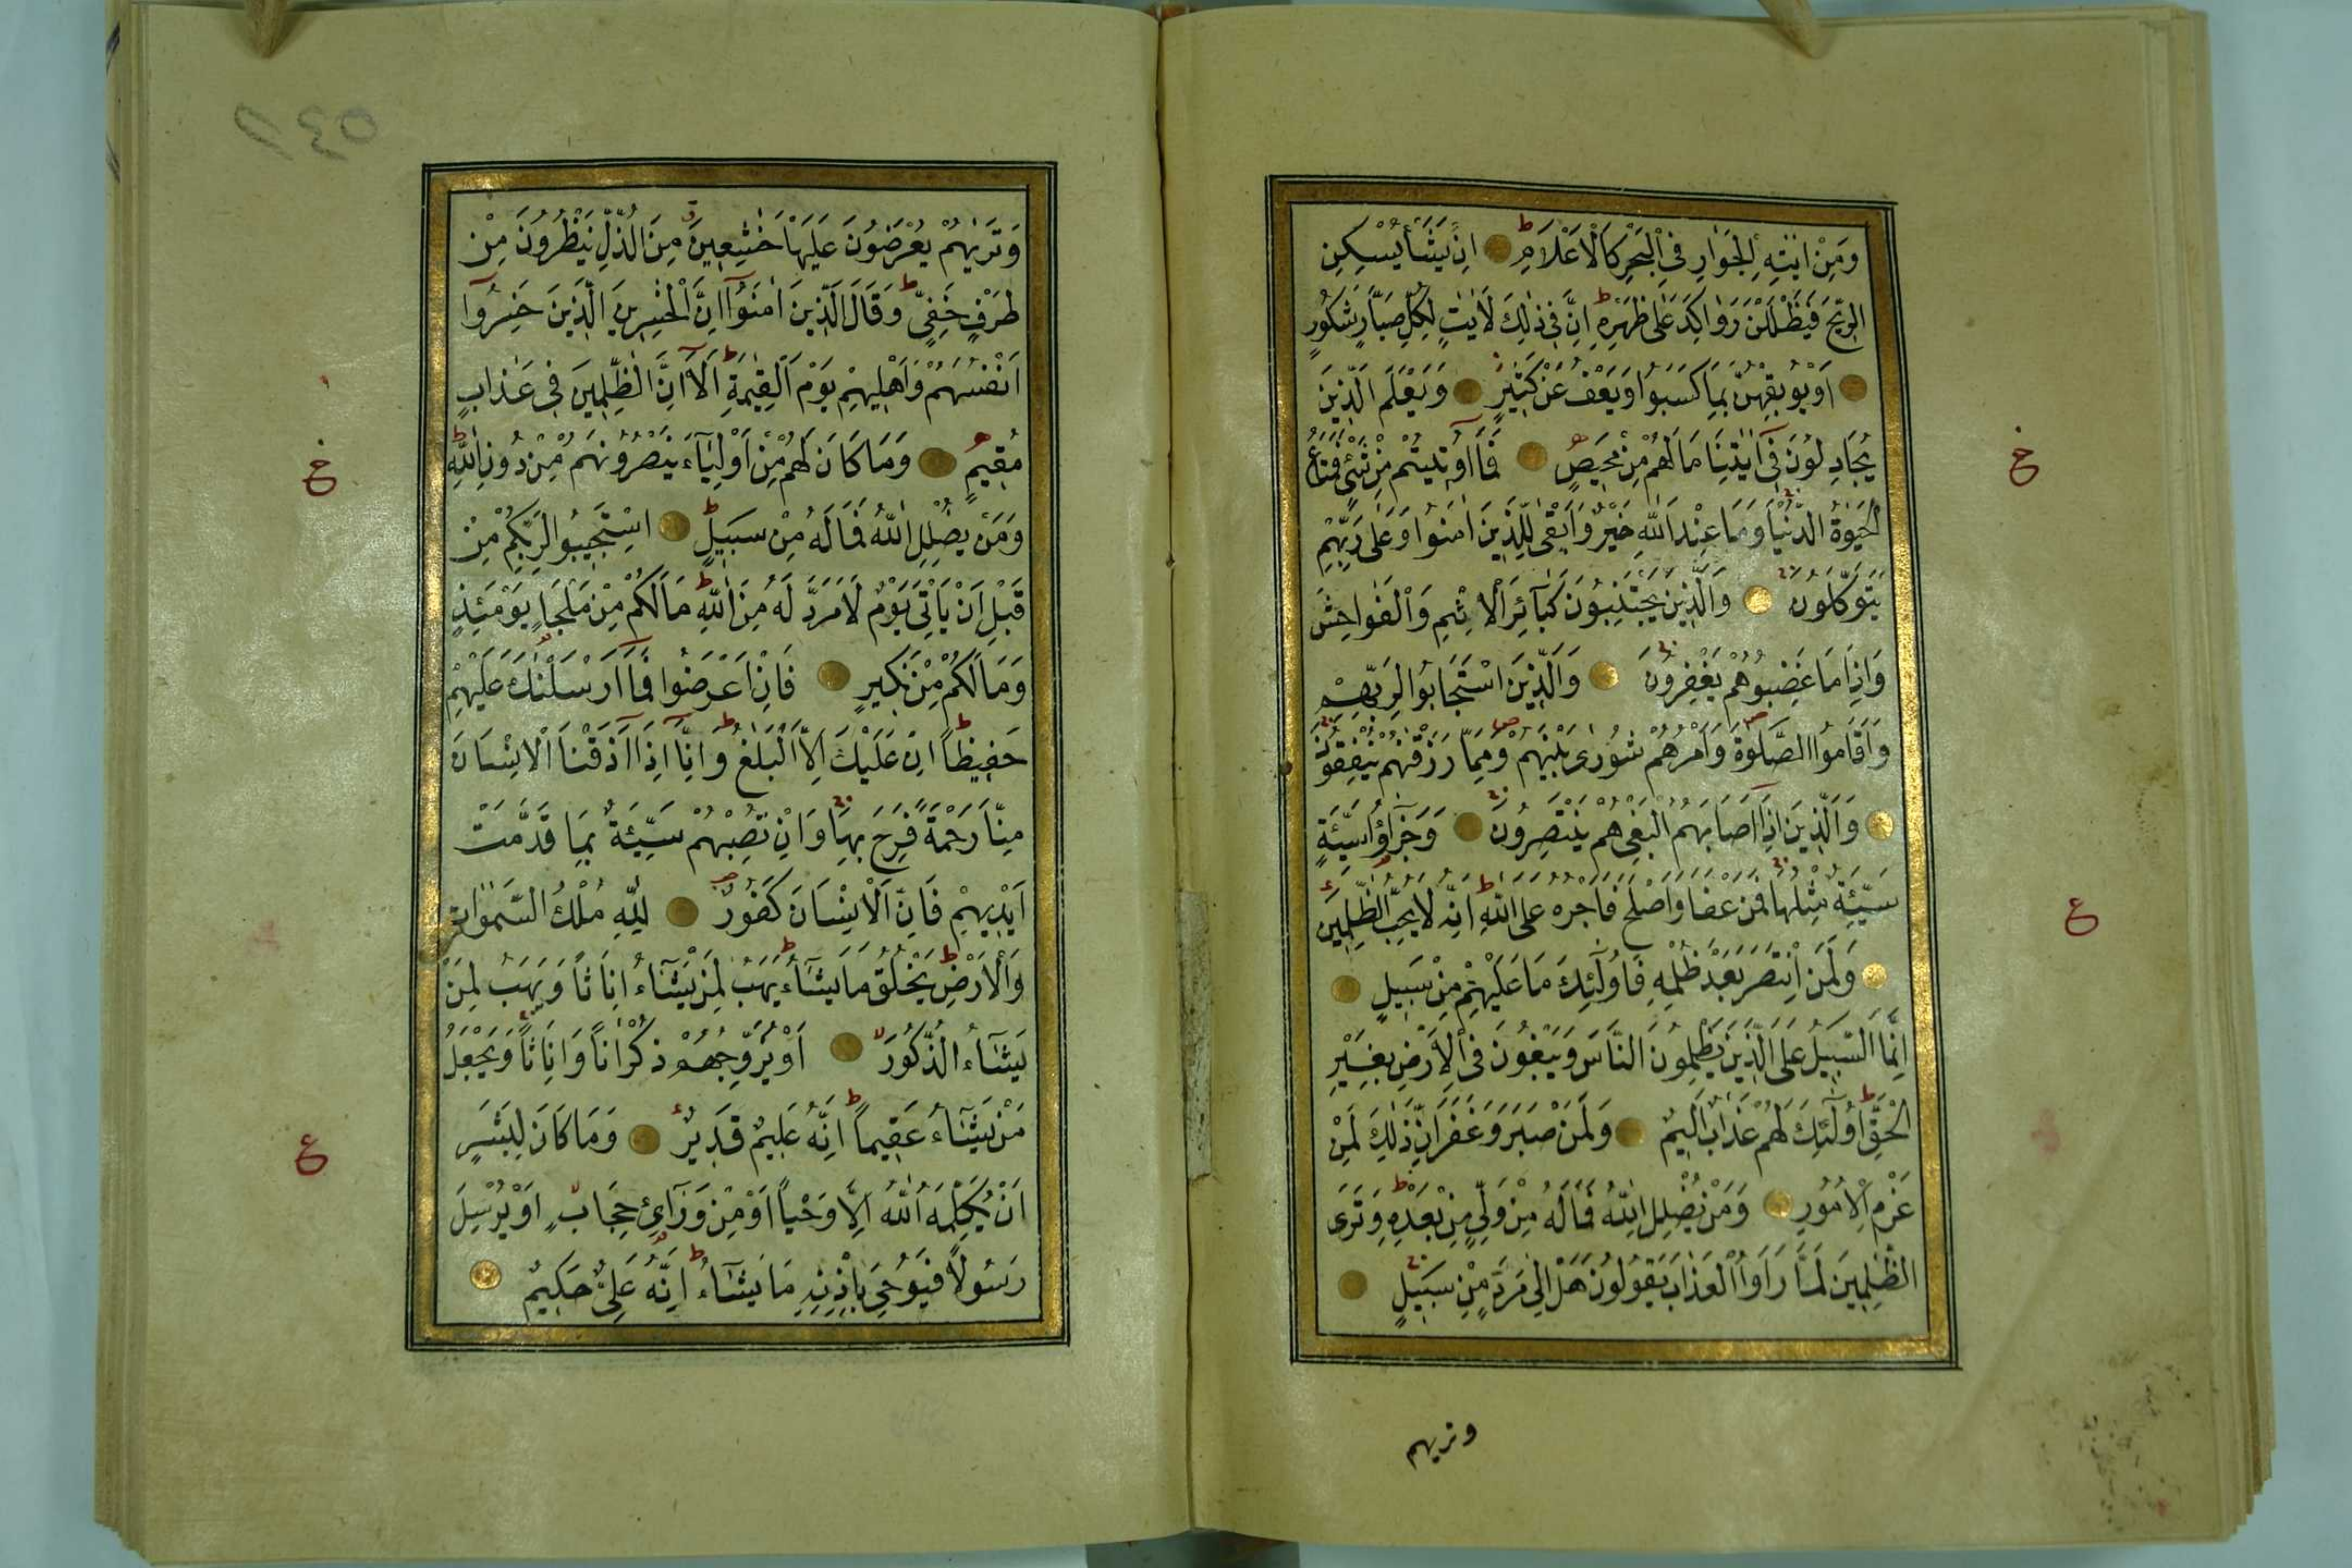 وَمِنْ اٰيٰتِهِ الْجَوَارِ فِى الْبَحْرِ كَالْاَعْلَامِ اِنْ يَشَأْ يُسْكِنِ
الرّٖيحَ فَيَظْلَلْنَ رَوَاكِدَ عَلٰى ظَهْرِهٖ اِنَّ فٖى ذٰلِكَ لَاٰيَاتٍ لِكُلِّ صَبَّارٍ شَكُورٍ
اَوْ يُوبِقْهُنَّ بِمَا كَسَبُوا وَيَعْفُ عَنْ كَثٖيرٍ وَيَعْلَمَ الَّذٖينَ
يُجَادِلُونَ فٖٓى اٰيَاتِنَا مَا لَهُمْ مِنْ مَحٖيصٍ فَمَٓا اُوتٖيتُمْ مِنْ شَىْءٍ فَمَتَاعُ
الْحَيٰوةِ الدُّنْيَا وَمَا عِنْدَ اللّٰهِ خَيْرٌ وَاَبْقٰى لِلَّذٖينَ اٰمَنُوا وَعَلٰى رَبِّهِمْ
يَتَوَكَّلُونَ وَالَّذٖينَ يَجْتَنِبُونَ كَبَٓائِرَ الْاِثْمِ وَالْفَوَاحِشَ
وَاِذَا مَا غَضِبُوا هُمْ يَغْفِرُونَ وَالَّذٖينَ اسْتَجَابُوا لِرَبِّهِمْ
وَاَقَامُوا الصَّلٰوةَ وَاَمْرُهُمْ شُورٰى بَيْنَهُمْ وَمِمَّا رَزَقْنٰهُمْ يُنْفِقُونَ
وَالَّذٖينَ اِذَٓا اَصَابَهُمُ الْبَغْىُ هُمْ يَنْتَصِرُونَ وَجَزٰٓؤُا سَيِّئَةٍ
سَيِّئَةٌ مِثْلُهَا فَمَنْ عَفَا وَاَصْلَحَ فَاَجْرُهُ عَلَى اللّٰهِ اِنَّهُ لَا يُحِبُّ الظّٰلِمٖينَ
وَلَمَنِ انْتَصَرَ بَعْدَ ظُلْمِهٖ فَاُولٰٓئِكَ مَا عَلَيْهِمْ مِنْ سَبٖيلٍ
اِنَّمَا السَّبٖيلُ عَلَى الَّذٖينَ يَظْلِمُونَ النَّاسَ وَيَبْغُونَ فِى الْاَرْضِ بِغَيْرِ
الْحَقِّ اُولٰٓئِكَ لَهُمْ عَذَابٌ اَلٖيمٌ وَلَمَنْ صَبَرَ وَغَفَرَ اِنَّ ذٰلِكَ لَمِنْ
عَزْمِ الْاُمُورِ وَمَنْ يُضْلِلِ اللّٰهُ فَمَا لَهُ مِنْ وَلِىٍّ مِنْ بَعْدِهٖ وَتَرَى
الظّٰلِمٖينَ لَمَّا رَاَوُا الْعَذَابَ يَقُولُونَ هَلْ اِلٰى مَرَدٍّ مِنْ سَبٖيلٍ
وتريهم
خ
ع
١٤٥
وَتَرٰيهُمْ يُعْرَضُونَ عَلَيْهَا خٰشِعٖينَ مِنَ الذُّلِّ يَنْظُرُونَ مِنْ
طَرْفٍ خَفِىٍّ وَقَالَ الَّذٖينَ اٰمَنُٓوا اِنَّ الْخٰسِرٖينَ الَّذٖينَ خَسِرُٓوا
اَنْفُسَهُمْ وَاَهْلٖيهِمْ يَوْمَ الْقِيٰمَةِ اَلَٓا اِنَّ الظّٰلِمٖينَ فٖى عَذَابٍ
مُقٖيمٍ وَمَا كَانَ لَهُمْ مِنْ اَوْلِيَٓاءَ يَنْصُرُونَهُمْ مِنْ دُونِ اللّٰهِ
وَمَنْ يُضْلِلِ اللّٰهُ فَمَا لَهُ مِنْ سَبٖيلٍ اِسْتَجٖيبُوا لِرَبِّكُمْ مِنْ
قَبْلِ اَنْ يَاْتِىَ يَوْمٌ لَا مَرَدَّ لَهُ مِنَ اللّٰهِ مَا لَكُمْ مِنْ مَلْجَاٍ يَوْمَئِذٍ
وَمَا لَكُمْ مِنْ نَكٖيرٍ فَاِنْ اَعْرَضُوا فَمَٓا اَرْسَلْنٰكَ عَلَيْهِمْ
حَفٖيظًا اِنْ عَلَيْكَ اِلَّا الْبَلٰغُ وَاِنَّٓا اِذَٓا اَذَقْنَا الْاِنْسَانَ
مِنَّا رَحْمَةً فَرِحَ بِهَا وَاِنْ تُصِبْهُمْ سَيِّئَةٌ بِمَا قَدَّمَتْ
اَيْدٖيهِمْ فَاِنَّ الْاِنْسَانَ كَفُورٌ لِلّٰهِ مُلْكُ السَّمٰوَاتِ
وَالْاَرْضِ يَخْلُقُ مَا يَشَٓاءُ يَهَبُ لِمَنْ يَشَٓاءُ اِنَاثًا وَيَهَبُ لِمَنْ
يَشَٓاءُ الذُّكُورَ اَوْ يُزَوِّجُهُمْ ذُكْرَانًا وَاِنَاثًا وَيَجْعَلُ
مَنْ يَشَٓاءُ عَقٖيمًا اِنَّهُ عَلٖيمٌ قَدٖيرٌ وَمَا كَانَ لِبَشَرٍ
اَنْ يُكَلِّمَهُ اللّٰهُ اِلَّا وَحْيًا اَوْ مِنْ وَرَٓائِ حِجَابٍ اَوْ يُرْسِلَ
رَسُولًا فَيُوحِىَ بِاِذْنِهٖ مَا يَشَٓاءُ اِنَّهُ عَلِىٌّ حَكٖيمٌ
خ
ع